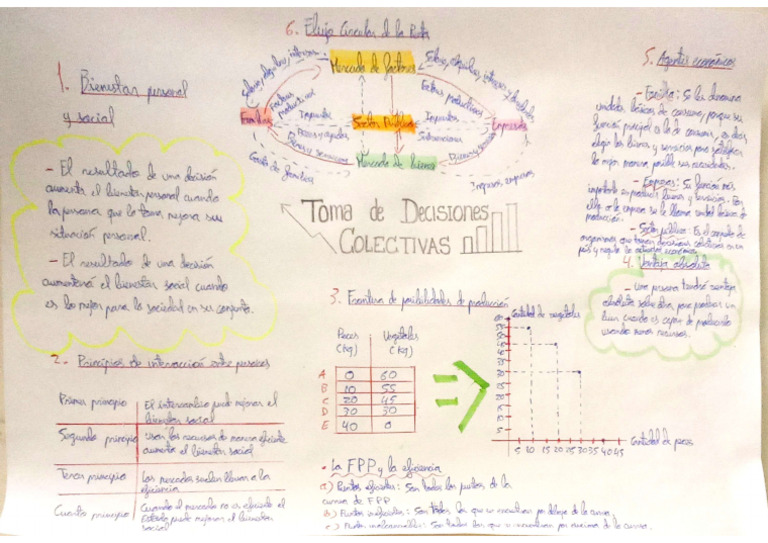 6. Flujo Circular de la Renta
Mercado de factores
Salarios, alquileres, intereses
Salarios, alquileres, intereses y dividendos
Factores product.
Factores productivos
Familias
Impuestos
Sector Público
Impuestos
Empresas
Subvenciones
Bienes y servicios
Bienes y servicios
Mercado de bienes
Gasto de familia
Ingresos empresas
Toma de Decisiones
Colectivas
1. Bienestar personal
y social
- El resultado de una decisión
aumenta el bienestar personal cuando
la persona que la toma, mejora su
situación personal.
- El resultado de una decisión
aumentará el bienestar social cuando
es lo mejor para la sociedad en su conjunto.
2. Principios de interacción entre personas
Primer principio
El intercambio puede mejorar el
bienestar social
Segundo principio
Usar los recursos de manera eficiente
aumenta el bienestar social
Tercer principio
Los mercados suelen llevar a la
eficiencia
Cuarto principio
Cuando el mercado no es eficiente el
Estado puede mejorar el bienestar
social
3. Frontera de posibilidades de producción
Peces
(kg)
Vegetales
(kg)
A 0 60
B 10 55
C 20 45
D 30 30
E 40 0
Cantidad de vegetales
5 10 15 20 25 30 35 40 45
Cantidad de peces
- La FPP y la eficiencia
a) Puntos eficientes: Son todos los puntos de la
curva de FPP
b) Puntos ineficientes: Son todos los que se encuentran por debajo de la curva.
c) Puntos inalcanzables: Son todos los que se encuentran por encima de la curva.
5. Agentes económicos
- Familia: Se les denomina
unidades básicas de consumo, porque su
función principal es la de consumir, es decir,
elegir los bienes y servicios para satisfacer
la mejor manera posible sus necesidades.
- Empresas: Su función más
importante es producir bienes y servicios. Por
ello a la empresa se le llama unidad básica de
producción.
- Sector público: Es el conjunto de
organismos que toman decisiones colectivas en un
país y regula la actividad económica.
4. Ventaja absoluta
- Una persona tendrá ventaja
absoluta sobre otra, para producir un
bien cuando es capaz de producirlo
usando menos recursos.